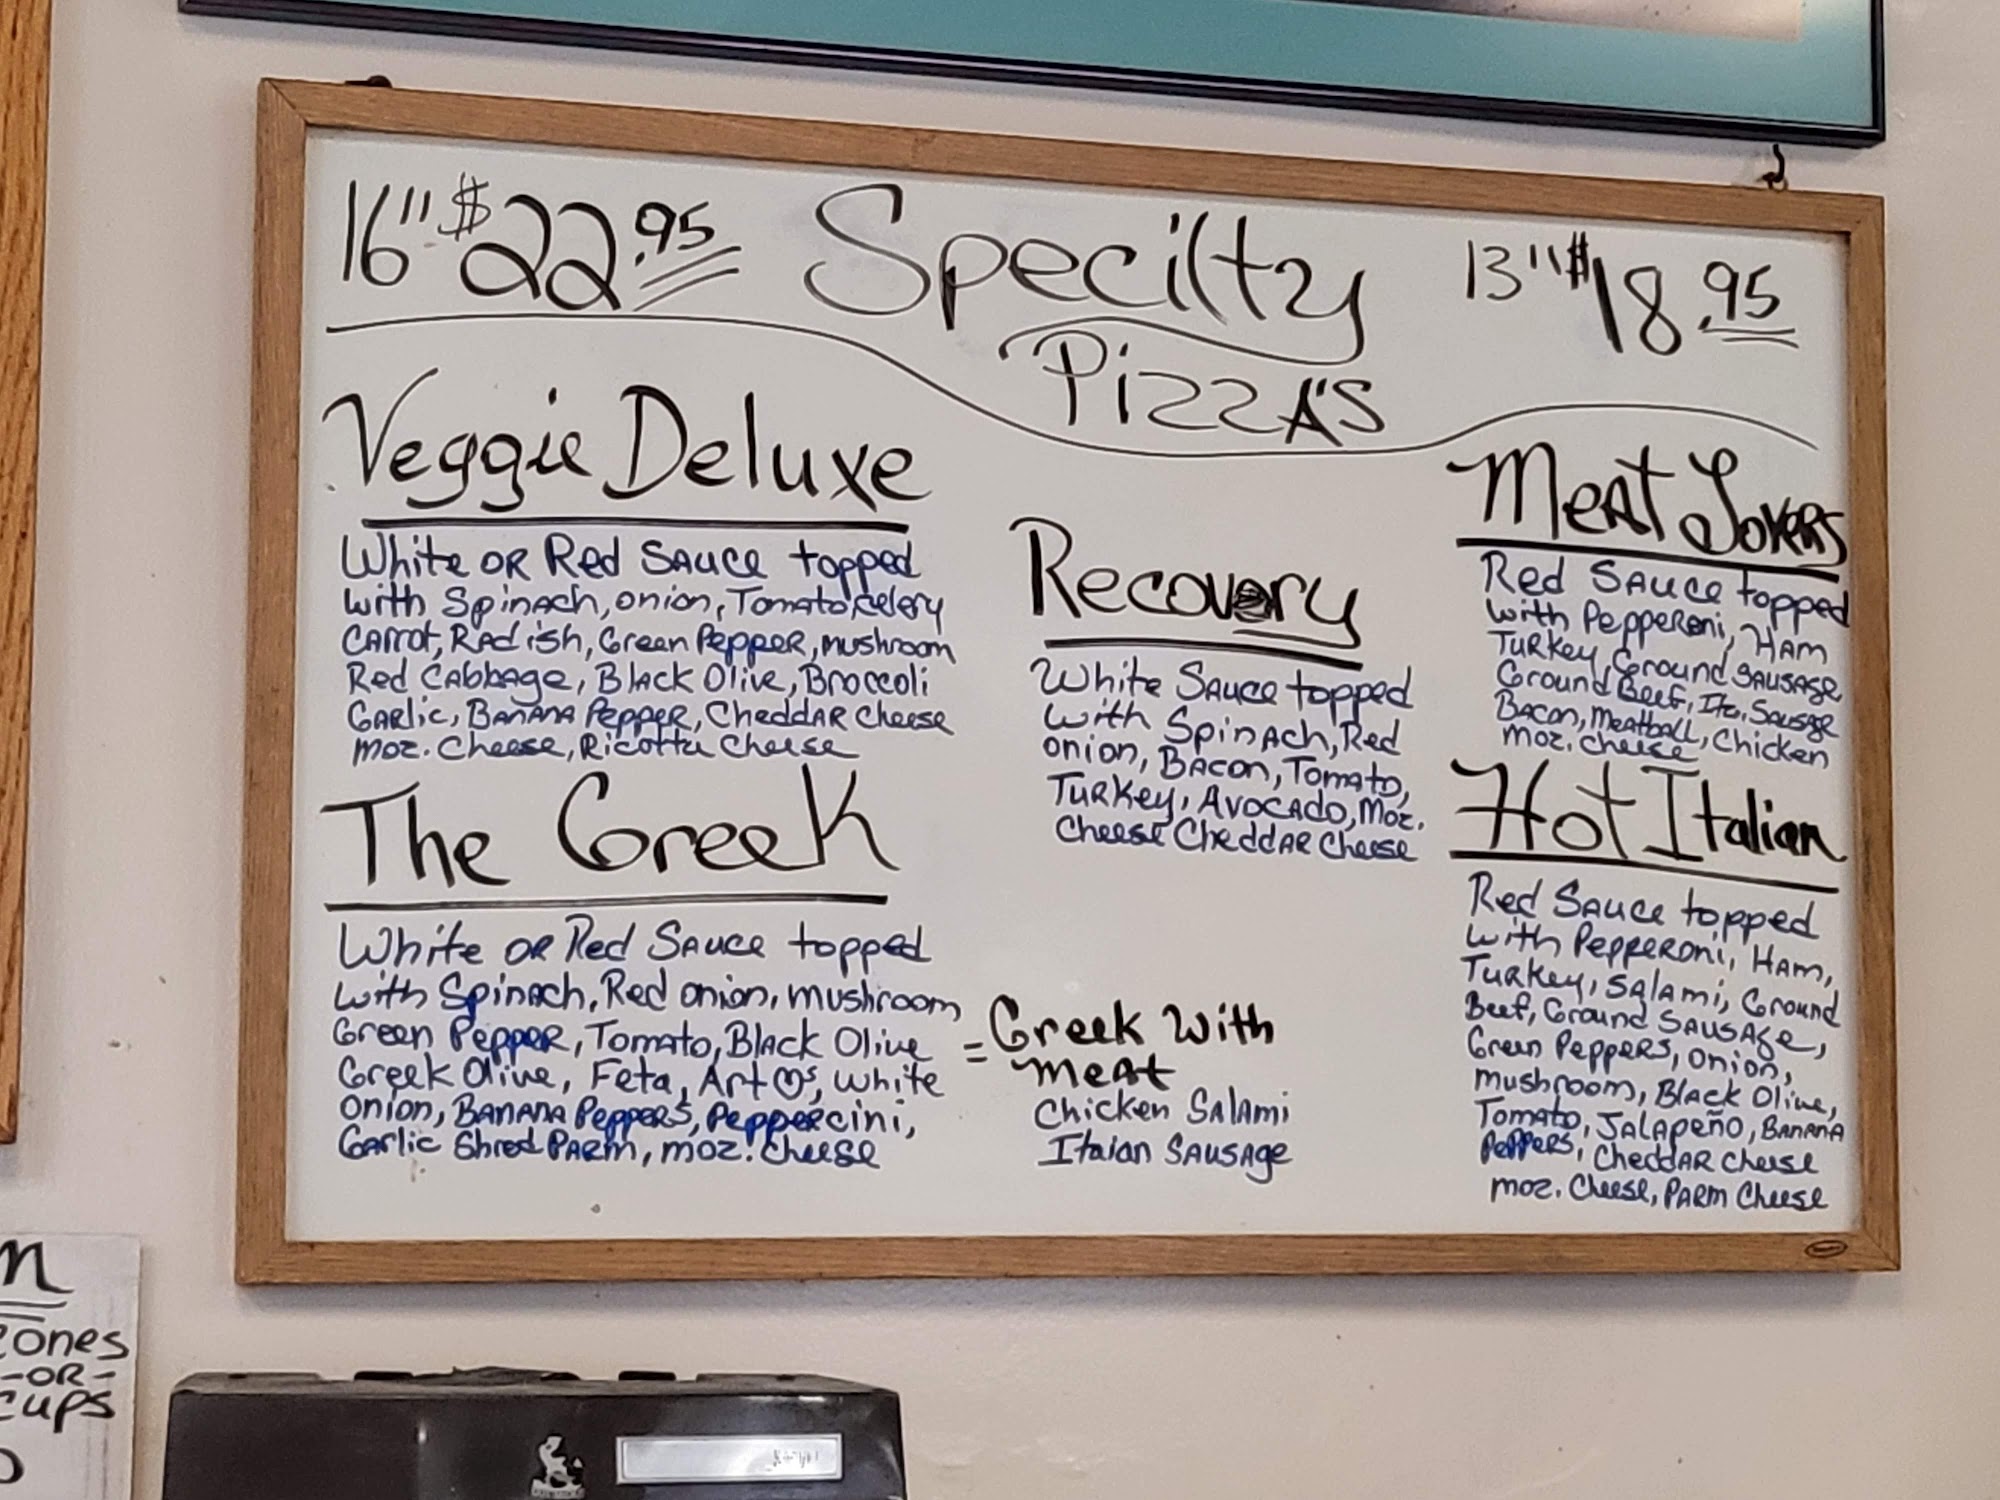 16" $22.95
Specilty
Pizza's
13" $18.95
Veggie Deluxe
White or Red Sauce topped
with Spinach, onion, Tomato, celery
Carrot, Radish, Green Pepper, mushroom
Red Cabbage, Black Olive, Broccoli
Garlic, Banana Pepper, Cheddar Cheese
moz. Cheese, Ricotta Cheese
The Greek
White or Red Sauce topped
with Spinach, Red onion, mushroom
Green Pepper, Tomato, Black Olive
Greek Olive, Feta, Art♡s, white
onion, Banana Peppers, Peppercini,
Garlic Shred Parm, moz. Cheese
Recovery
White Sauce topped
with Spinach, Red
onion, Bacon, Tomato,
Turkey, Avocado, Moz.
Cheese Cheddar Cheese
= Greek with
meat
Chicken Salami
Itaian Sausage
Meat Lovers
Red Sauce topped
with Pepperoni, Ham
Turkey, Ground Sausage
Ground Beef, Ita. Sausage
Bacon, Meatball, Chicken
moz. cheese
Hot Italian
Red Sauce topped
with Pepperoni, Ham,
Turkey, Salami, Ground
Beef, Ground Sausage,
Green Peppers, onion,
mushroom, Black Olive,
Tomato, Jalapeño, Banana
Peppers, Cheddar Cheese
moz. Cheese, Parm Cheese
cones
-OR-
cups